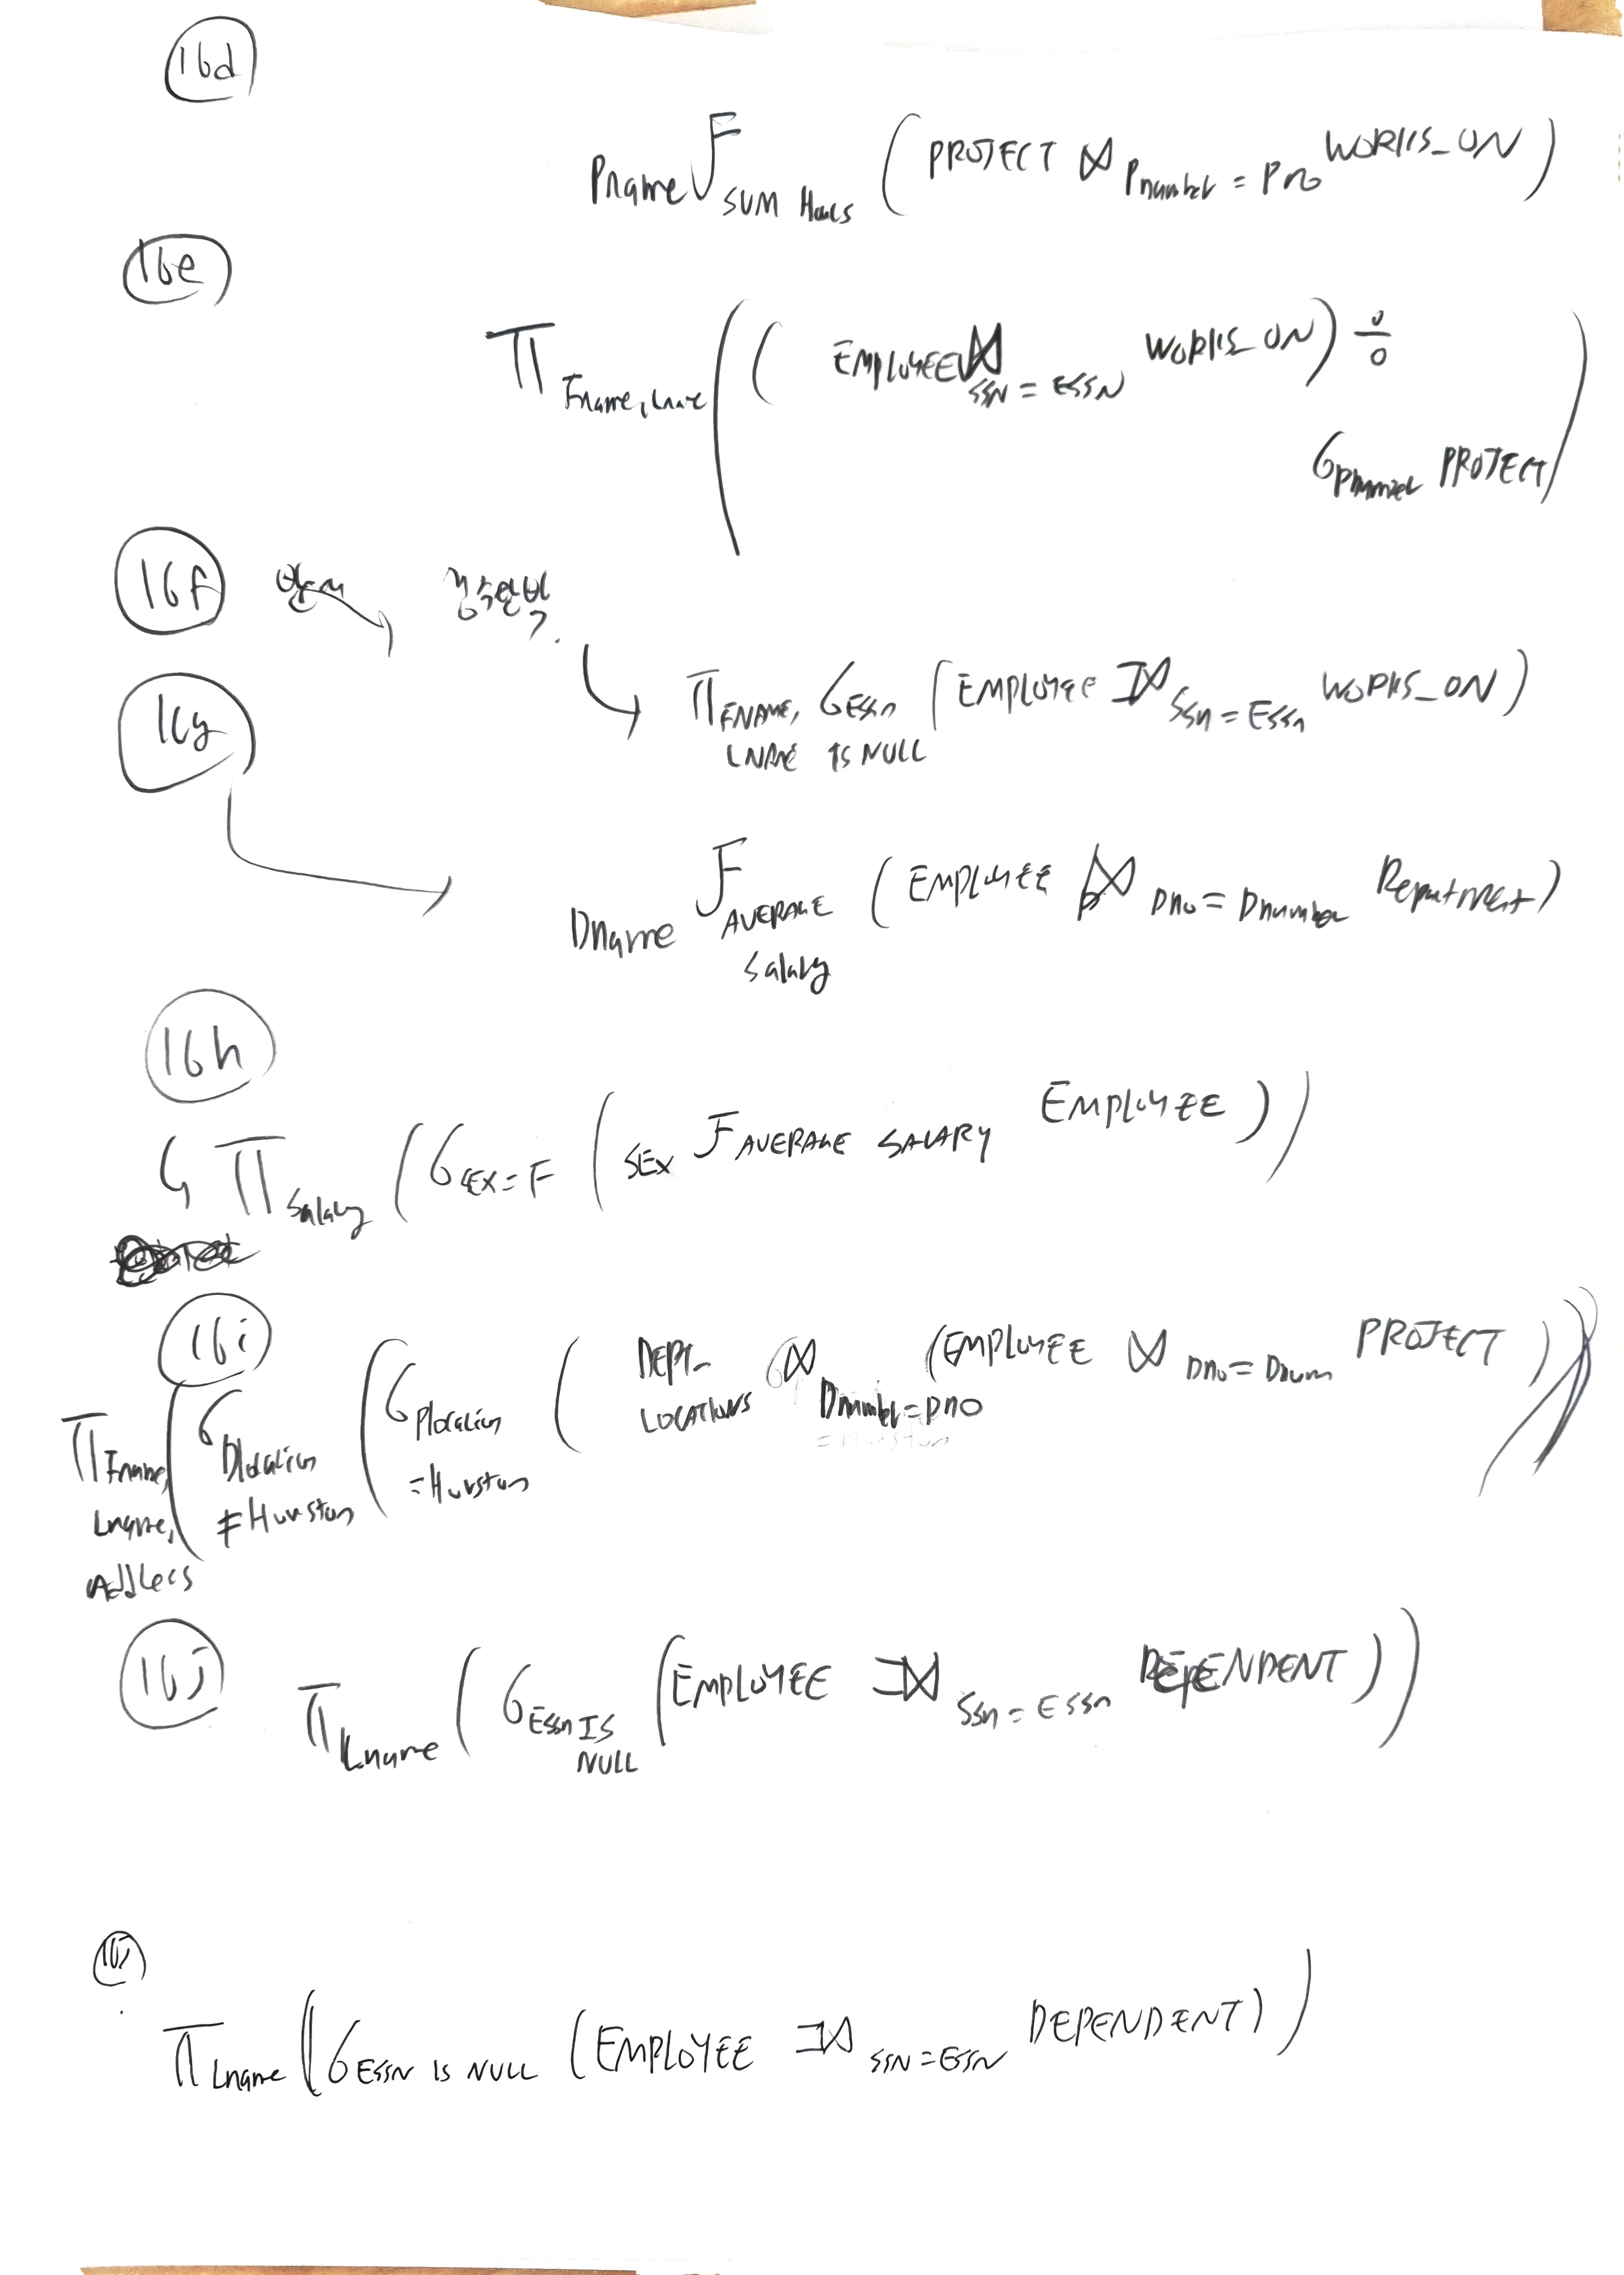 16d
Pname ℱ SUM Hours (PROJECT ⋈ Pnumber = Pno WORKS_ON)
16e
π Fname, Lname ((EMPLOYEE ⋈ SSN = ESSN WORKS_ON) ÷
σ Pnumber PROJECT)
16f
16g
π FNAME, LNAME σ Essn IS NULL (EMPLOYEE ⟕ Ssn = Essn WORKS_ON)
Dname ℱ AVERAGE Salary (EMPLOYEE ⋈ Dno = Dnumber Department)
16h
π Salary (σ SEX = F (SEX ℱ AVERAGE SALARY EMPLOYEE))
16i
π Fname, Lname, Address (σ Dlocation ≠ Houston (σ Plocation = Houston (DEPT_LOCATIONS ⋈ Dnumber = DNO (EMPLOYEE ⋈ Dno = Dnum PROJECT))))
16j
π Lname (σ Essn IS NULL (EMPLOYEE ⟕ Ssn = Essn DEPENDENT))
16j
π Lname (σ ESSN IS NULL (EMPLOYEE ⟕ SSN = ESSN DEPENDENT))